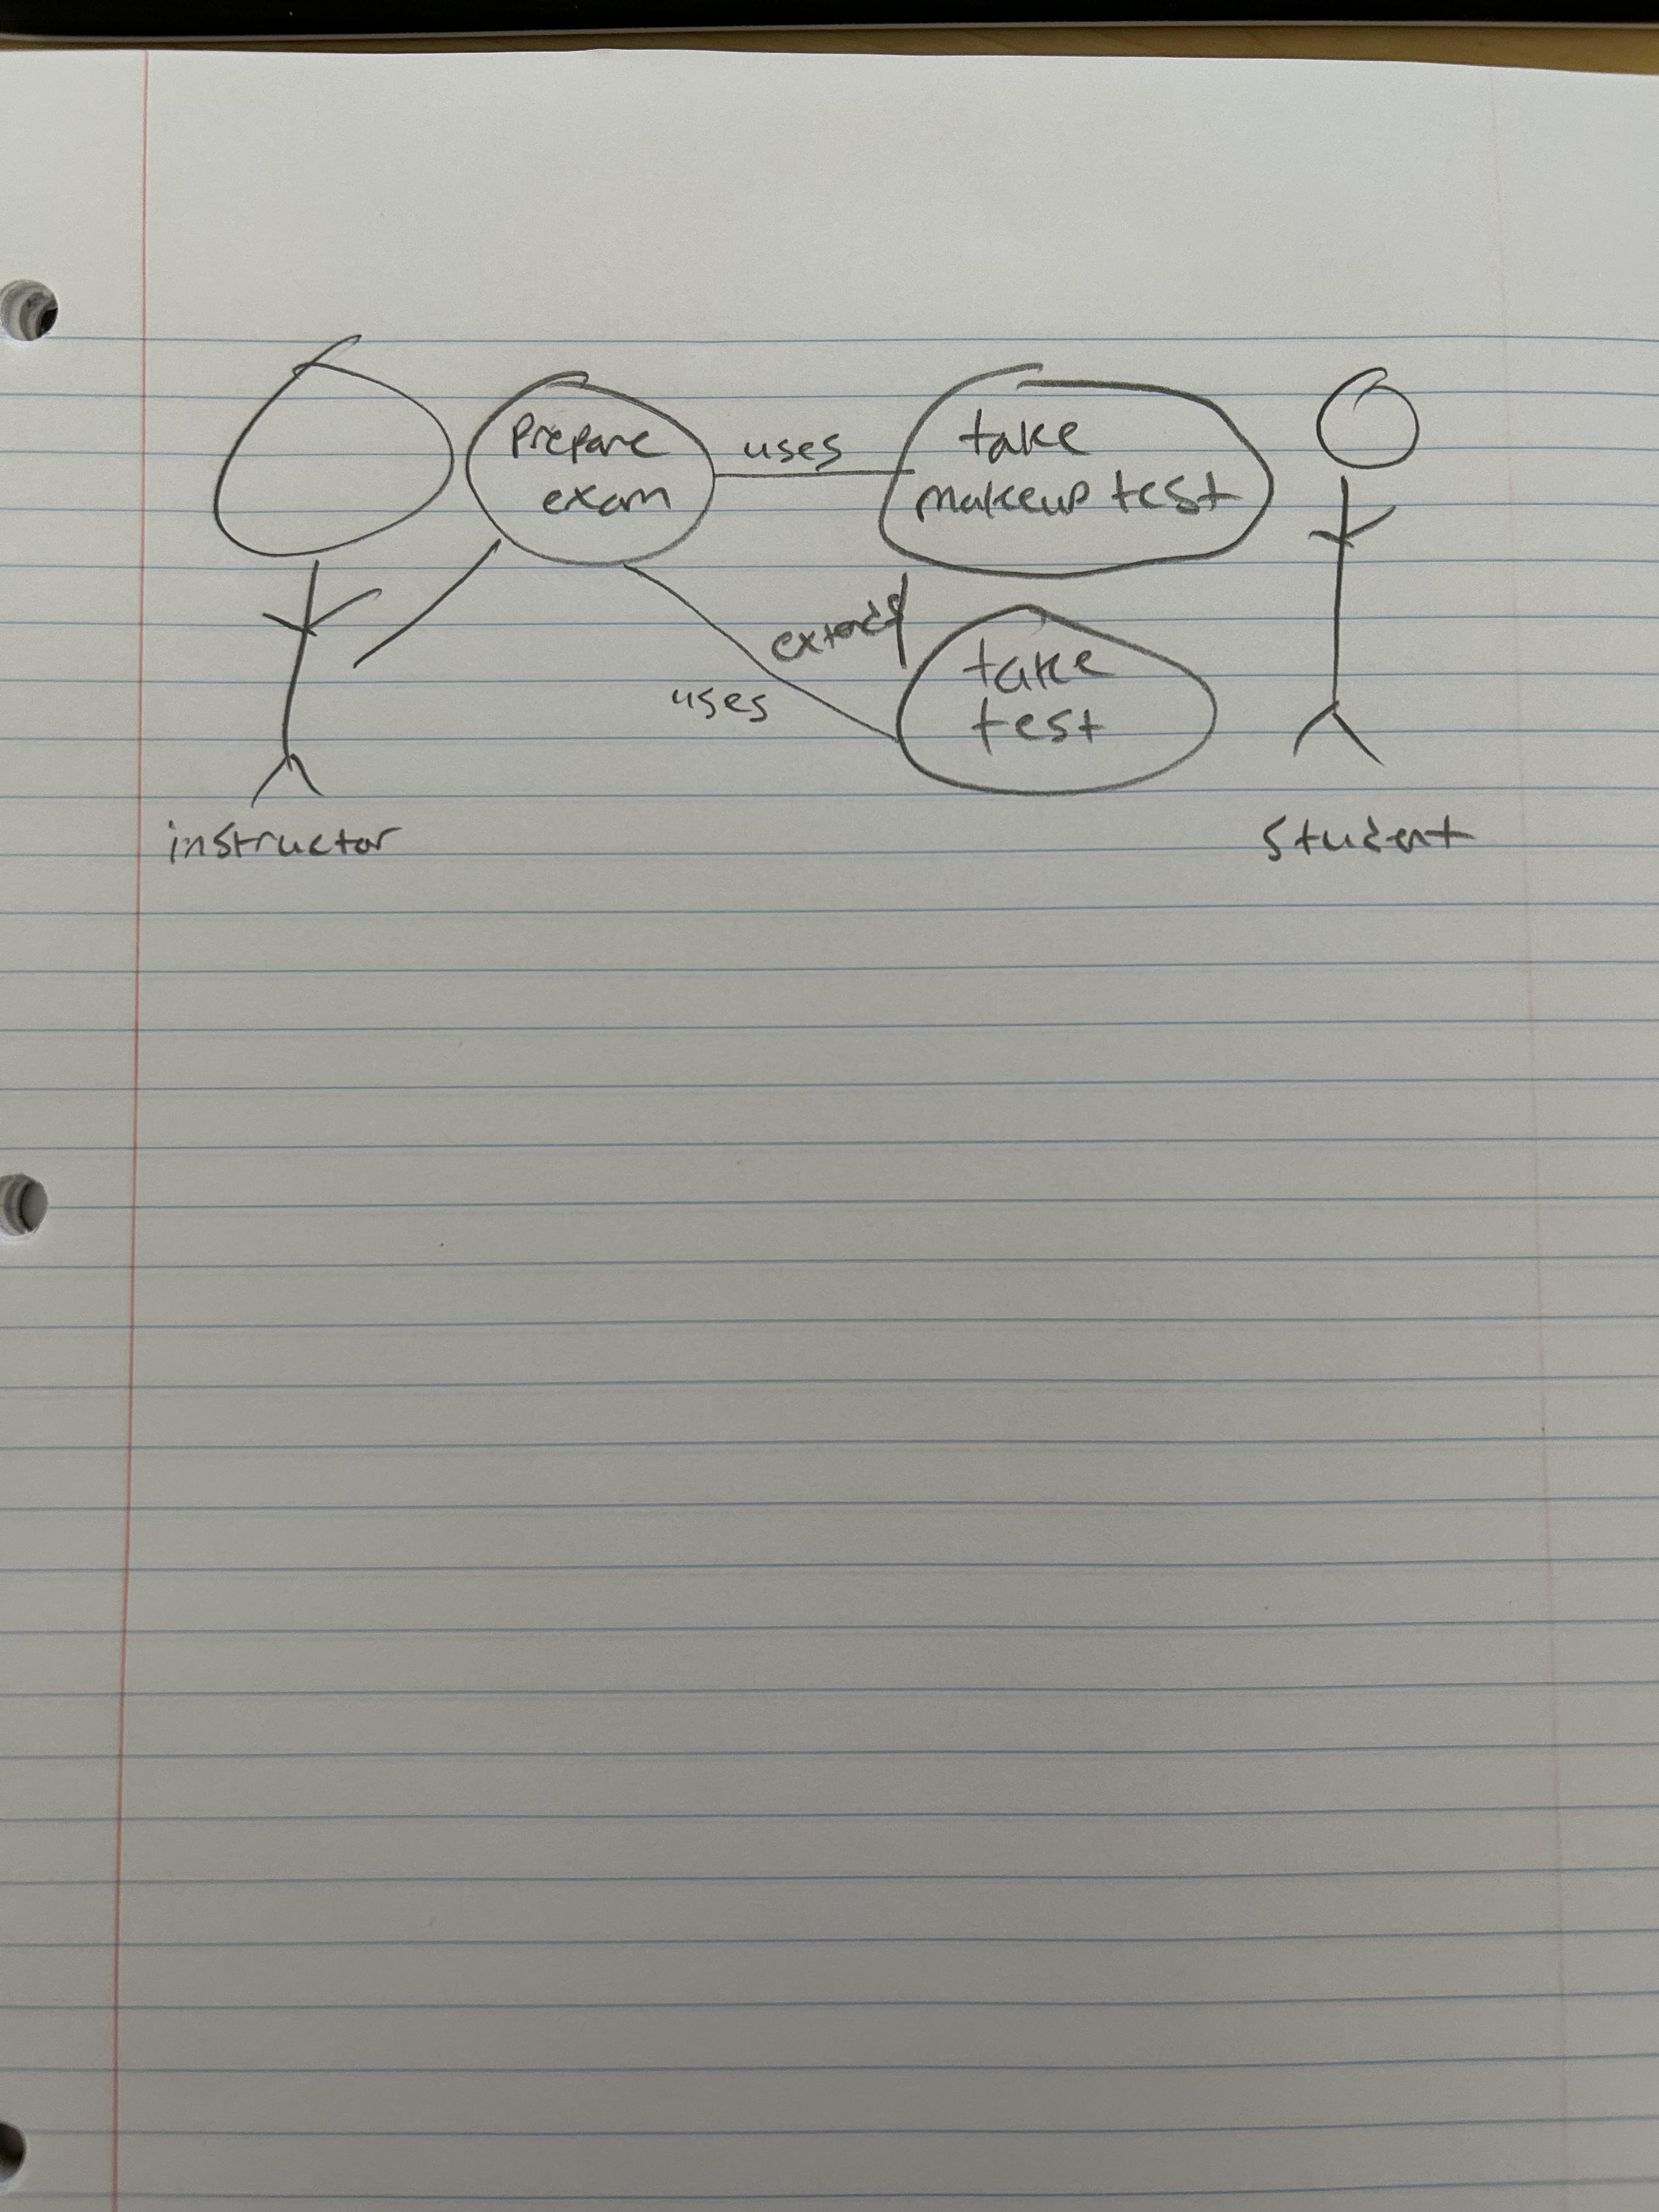 prepare
exam
uses
take
makeup test
extends
uses
take
test
instructor
student